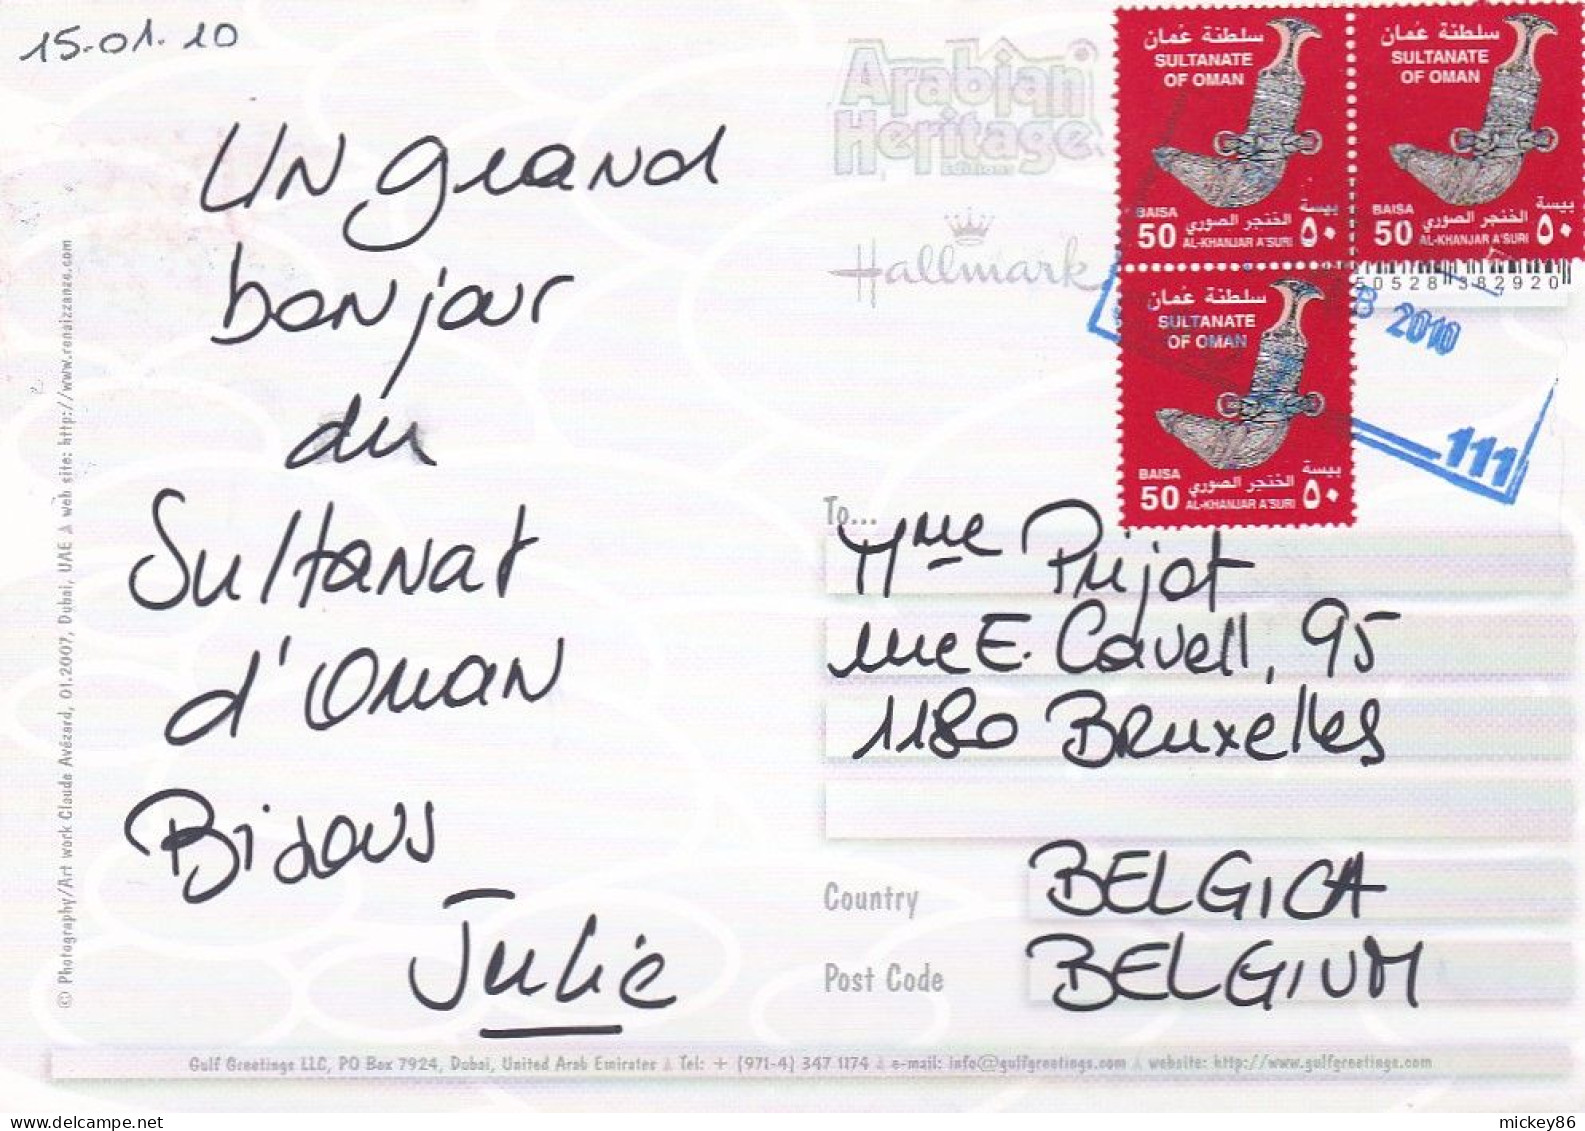 15.01.10
Un grand
bonjour
du
Sultanat
d'Oman
Bisous
Julie
© Photography/Art work Claude Avézard, 01.2007, Dubai, UAE web site: http://www.renaizzanze.com
Arabian
Heritage
Editions
Hallmark
سلطنة عُمان
SULTANATE
OF OMAN
BAISA بيسة
50 الخنجر الصوري ٥٠
AL-KHANJAR A'SURI
سلطنة عُمان
SULTANATE
OF OMAN
BAISA بيسة
50 الخنجر الصوري ٥٠
AL-KHANJAR A'SURI
50528 382920
سلطنة عُمان
SULTANATE
OF OMAN
BAISA بيسة
50 الخنجر الصوري ٥٠
AL-KHANJAR A'SURI
2010
111
To...
Mme Prijot
rue E. Cavell, 95
1180 Bruxelles
Country BELGICA
Post Code BELGIUM
Gulf Greetings LLC, PO Box 7924, Dubai, United Arab Emirates Tel: + (971-4) 347 1174 e-mail: info@gulfgreetings.com website: http://www.gulfgreetings.com
mickey86